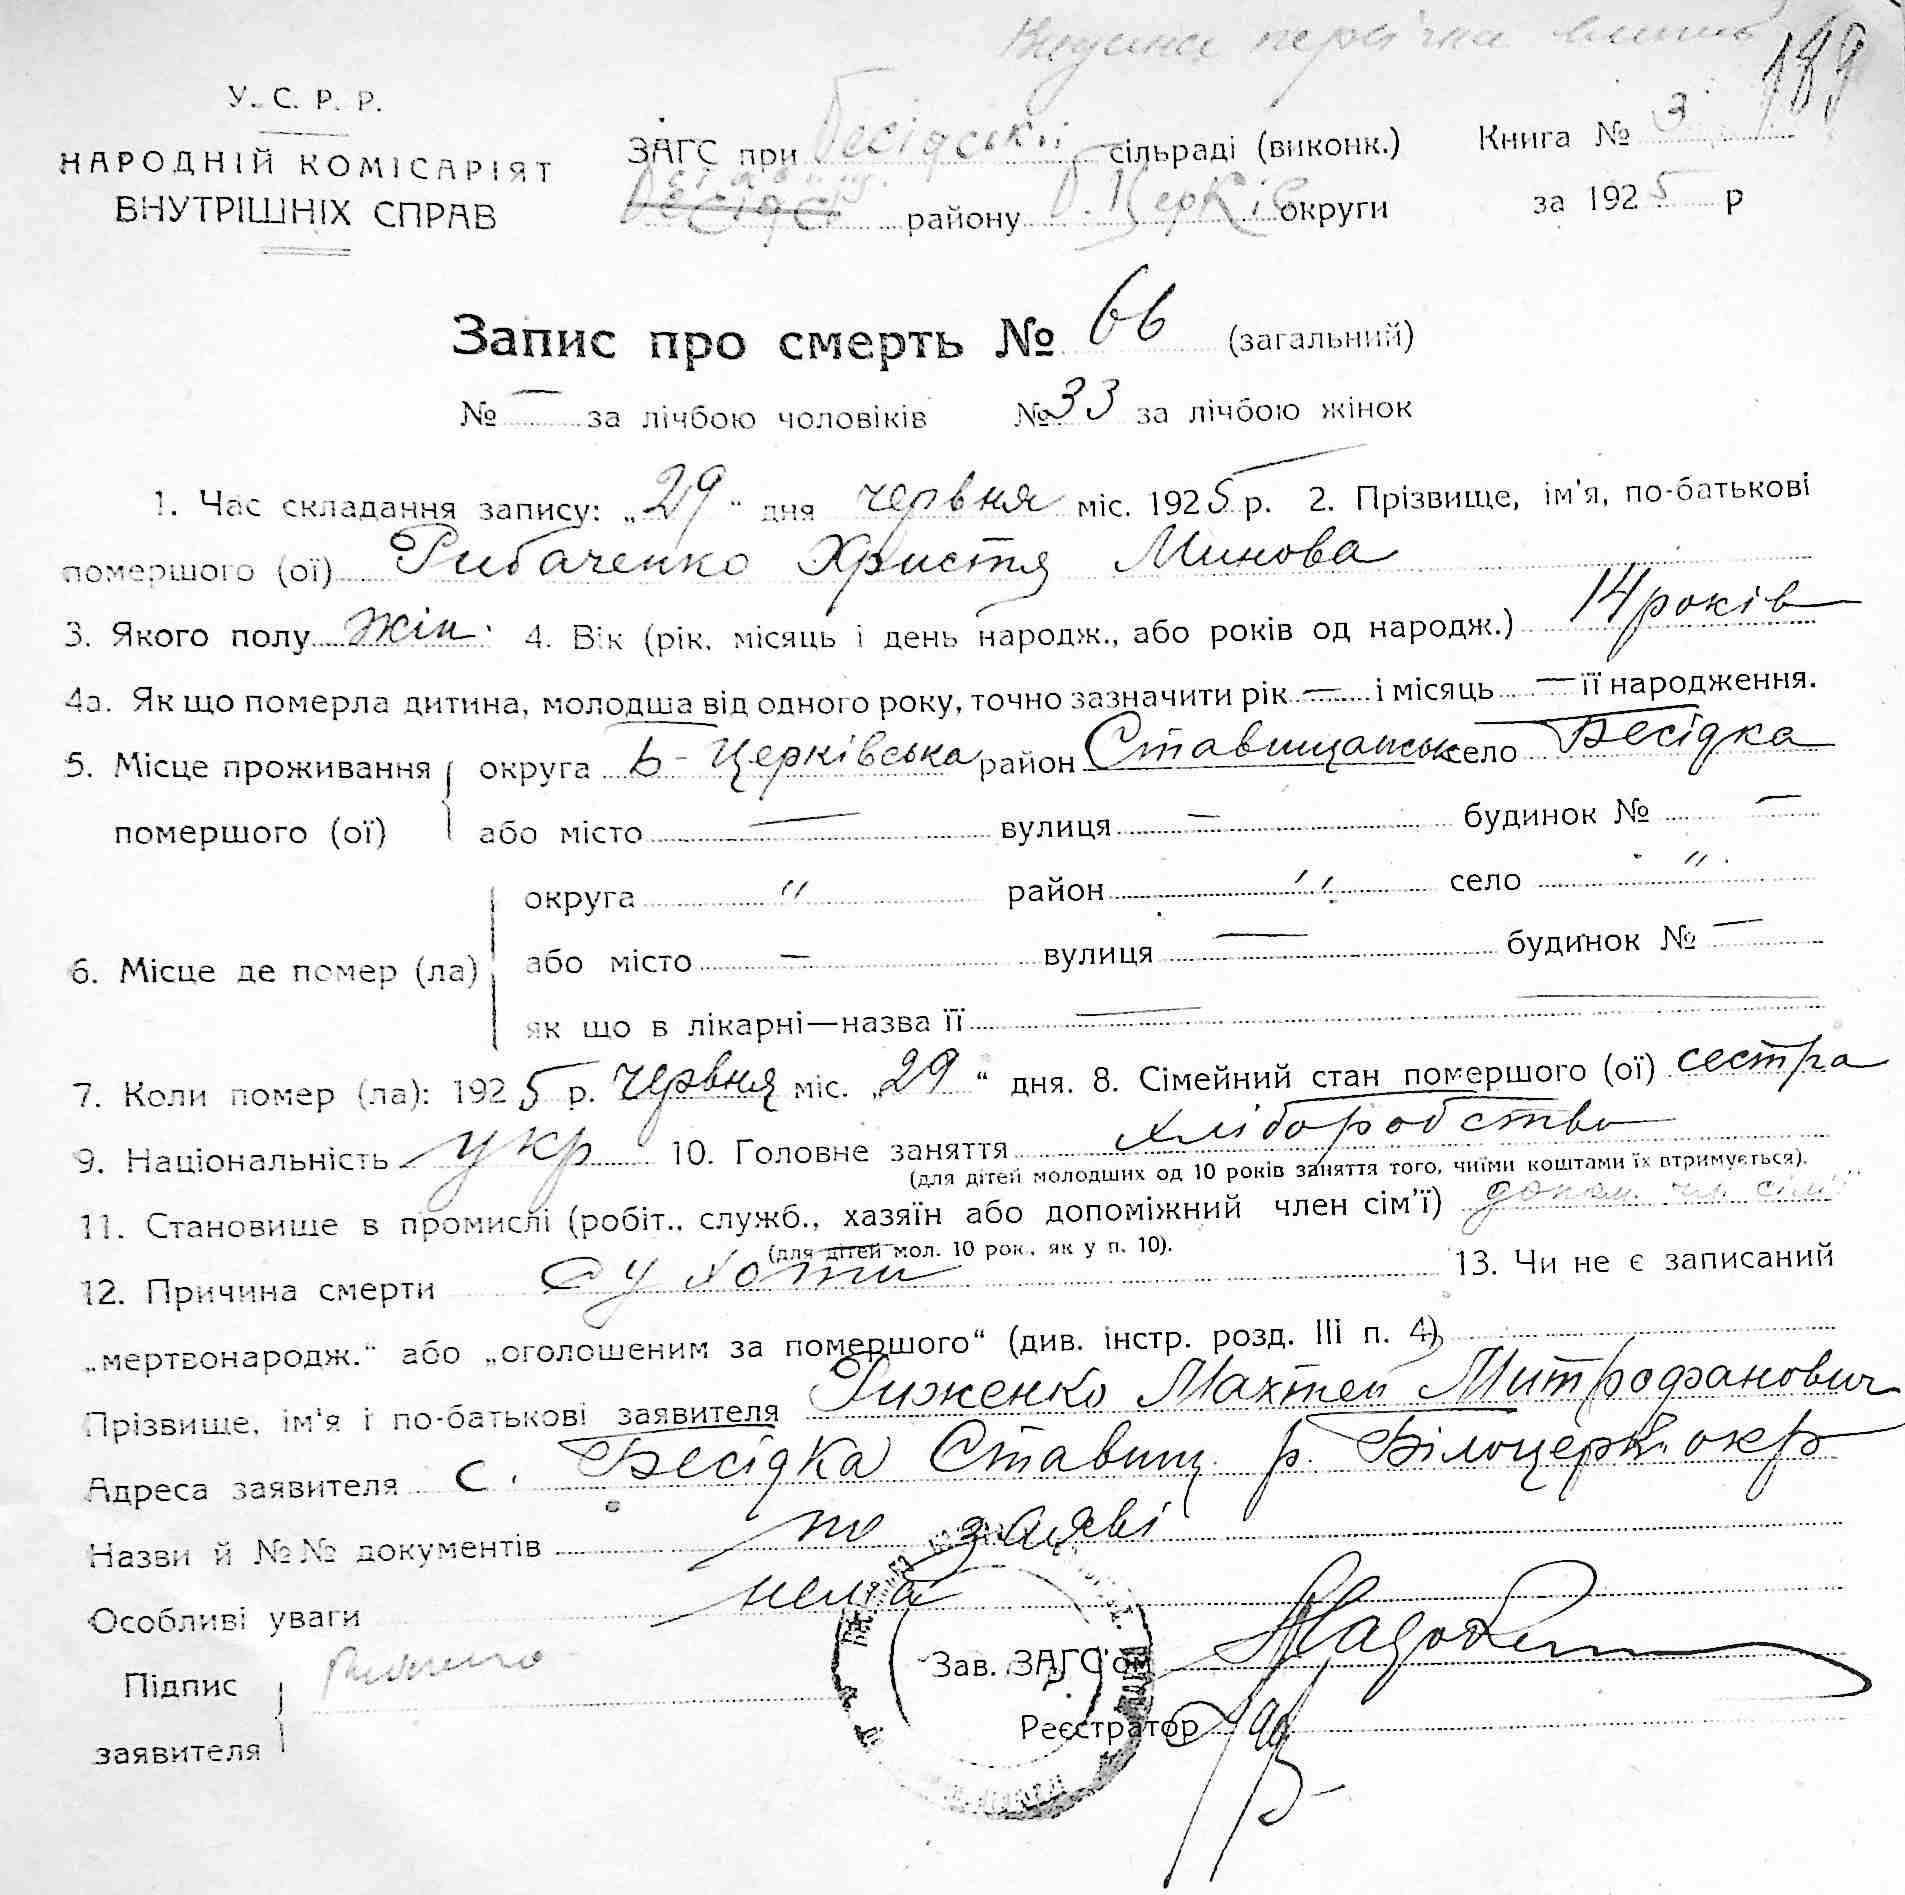 189
У. С. Р. Р.
НАРОДНІЙ КОМІСАРІЯТ
ВНУТРІШНІХ СПРАВ
ЗАГС при Бесідській сільраді (виконк.) Книга № 3
Бесідсі району Б. Церків округи за 1925 р
Запис про смерть № 66 (загальний)
№ — за лічбою чоловіків № 33 за лічбою жінок
1. Час складання запису: „29“ дня червня міс. 1925 р. 2. Прізвище, ім'я, по-батькові
помершого (ої) Рибаченко Христя Минова
3. Якого полу жін. 4. Вік (рік, місяць і день народж., або років од народж.) 14 років
4а. Як що померла дитина, молодша від одного року, точно зазначити рік — і місяць — її народження.
5. Місце проживання помершого (ої) округа Б-Церківська район Ставищанськ село Бесідка
або місто — вулиця — будинок № —
6. Місце де помер (ла) округа " район " село "
або місто — вулиця — будинок № —
як що в лікарні—назва її —
7. Коли помер (ла): 1925 р. червня міс. „29“ дня. 8. Сімейний стан помершого (ої) сестра
9. Національність укр 10. Головне заняття хліборобство
(для дітей молодших од 10 років заняття того, чиїми коштами їх втримується).
11. Становище в промислі (робіт., служб., хазяїн або допоміжний член сім'ї) допом. чл. сім'ї
(для дітей мол. 10 рок., як у п. 10).
12. Причина смерти сухоти 13. Чи не є записаний
„мертвонародж.“ або „оголошеним за помершого“ (див. інстр. розд. III п. 4)
Прізвище, ім'я і по-батькові заявителя Риженко Махтей Митрофанович
Адреса заявителя с. Бесідка Ставищ. р. Білоцерк. окр
Назви й №№ документів по заяві
Особливі уваги нема
Підпис заявителя
Зав. ЗАГС'ом
Реєстратор